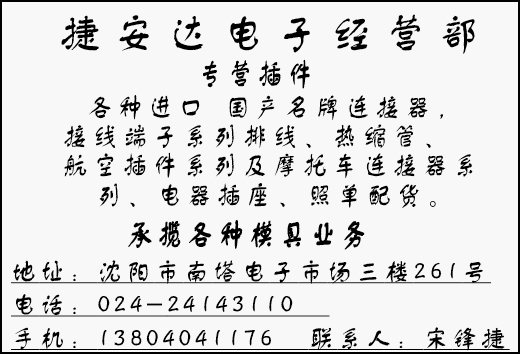 捷安达电子经营部
专营插件
各种进口 国产名牌连接器，
接线端子系列排线、热缩管、
航空插件系列及摩托车连接器系
列、电器插座、照单配货。
承揽各种模具业务
地址：沈阳市南塔电子市场三楼261号
电话：024-24143110
手机：13804041176 联系人：宋锋捷